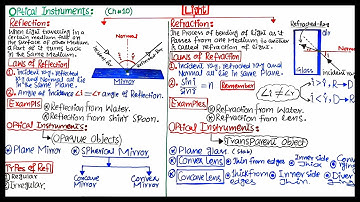 Optical Instruments: (Ch#10)
Light
Reflection:
When light travelling in a
certain medium fall on
the surface of other medium
a part of it turns back
in the same Medium.
Laws of Reflection
1. Incident ray, reflected
ray and Normal all lie
in the same Plane.
2. Angle of Incidence
Angle of Reflection.
Normal
Mirror
Examples
Reflection from Water.
Reflection from Shiny Spoon.
Optical Instruments:
(Opaque Objects)
Plane Mirror
Spherical Mirror
Types of Refl
Regular
Irregular.
Concave
Mirror
Convex
Mirror
Refraction:
The Process of bending of Light as it
Passes from one Medium to another
is called refraction of Light.
Laws of Refraction
1. Incident ray, refracted ray and
Normal all lie in same Plane.
2. sin i
sin r
= n
Remember
∠i ≠ ∠r
Refracted-ray
Glass
Air
Examples
Refraction from Water.
Refraction from Lens.
Optical Instruments:
(Transparent Object)
Plane Glass (Slab)
Convex Lens
Thin from
edges
inner side
Thick
Concave Lens
Thick from
edges
inner side
Thin